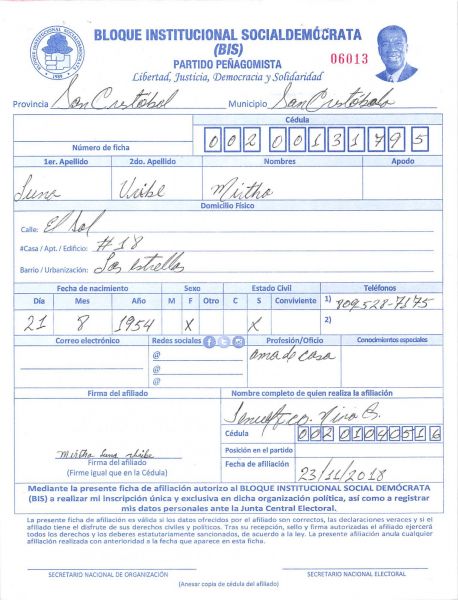 BLOQUE INSTITUCIONAL SOCIALDEMÓCRATA
(BIS)
PARTIDO PEÑAGOMISTA
06013
Libertad, Justicia, Democracia y Solidaridad
Provincia San Cristóbal Municipio San Cristóbal
Cédula
Número de ficha 0 0 2 0 0 1 3 1 7 9 5
1er. Apellido 2do. Apellido Nombres Apodo
Luna Uribe Mirtha
Domicilio Físico
Calle: El Sol
#Casa / Apt. / Edificio: #18
Barrio / Urbanización: Las estrellas
Fecha de nacimiento Sexo Estado Civil Teléfonos
Día Mes Año M F Otro C S Conviviente 1) 809528-7175
21 8 1954 X X 2)
Correo electrónico Redes sociales Profesión/Oficio Conocimientos especiales
@ ama de casa
@
@
Firma del afiliado Nombre completo de quien realiza la afiliación
Cédula 0 0 2 0 1 0 4 0 5 1 6
Mirtha Luna Uribe Posición en el partido
Firma del afiliado
(Firme igual que en la Cédula) Fecha de afiliación 23/11/2018
Mediante la presente ficha de afiliación autorizo al BLOQUE INSTITUCIONAL SOCIAL DEMÓCRATA
(BIS) a realizar mi inscripción única y exclusiva en dicha organización política, así como a registrar
mis datos personales ante la Junta Central Electoral.
La presente ficha de afiliación es válida si los datos ofrecidos por el afiliado son correctos, las declaraciones veraces y si el
afiliado tiene el disfrute de sus derechos civiles y políticos. Tras su recepción, sello y firma autorizadas el afiliado ejercerá
todos los derechos y los deberes estatutariamente sancionados, de acuerdo a la ley. La presente afiliación anula cualquier
afiliación realizada con anterioridad a la fecha que aparece en esta ficha.
SECRETARIO NACIONAL DE ORGANIZACIÓN SECRETARIO NACIONAL ELECTORAL
(Anexar copia de cédula del afiliado)